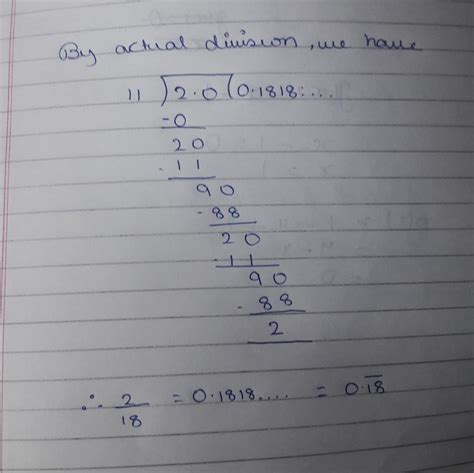 By actual division, we have
11 ) 2.0 ( 0.1818:...
-0
20
-11
90
-88
20
-11
90
-88
2
∴ 2/18 = 0.1818.... = 0.1̅8̅